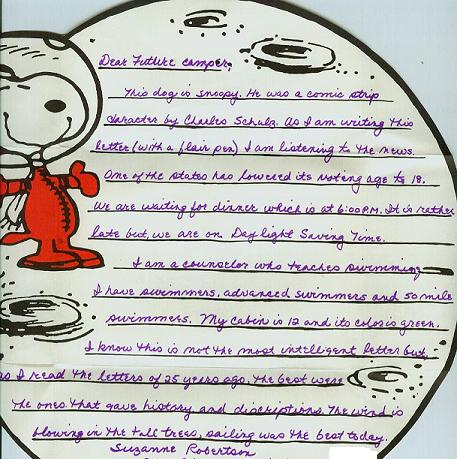 Dear Future camper,
This dog is Snoopy. He was a comic strip
character by Charles Schulz. As I am writing this
letter (with a flair pen) I am listening to the news.
One of the states has lowered its voting age to 18.
We are waiting for dinner which is at 6:00 P.M. It is rather
late but, we are on Daylight Saving Time.
I am a counselor who teaches swimming
I have swimmers, advanced swimmers and 50 mile
swimmers. My cabin is 12 and its color is green.
I know this is not the most intelligent letter but,
as I read the letters of 25 years ago, the best were
the ones that gave history and discriptions. The wind is
blowing in the tall trees, sailing was the best today.
Suzanne Robertson